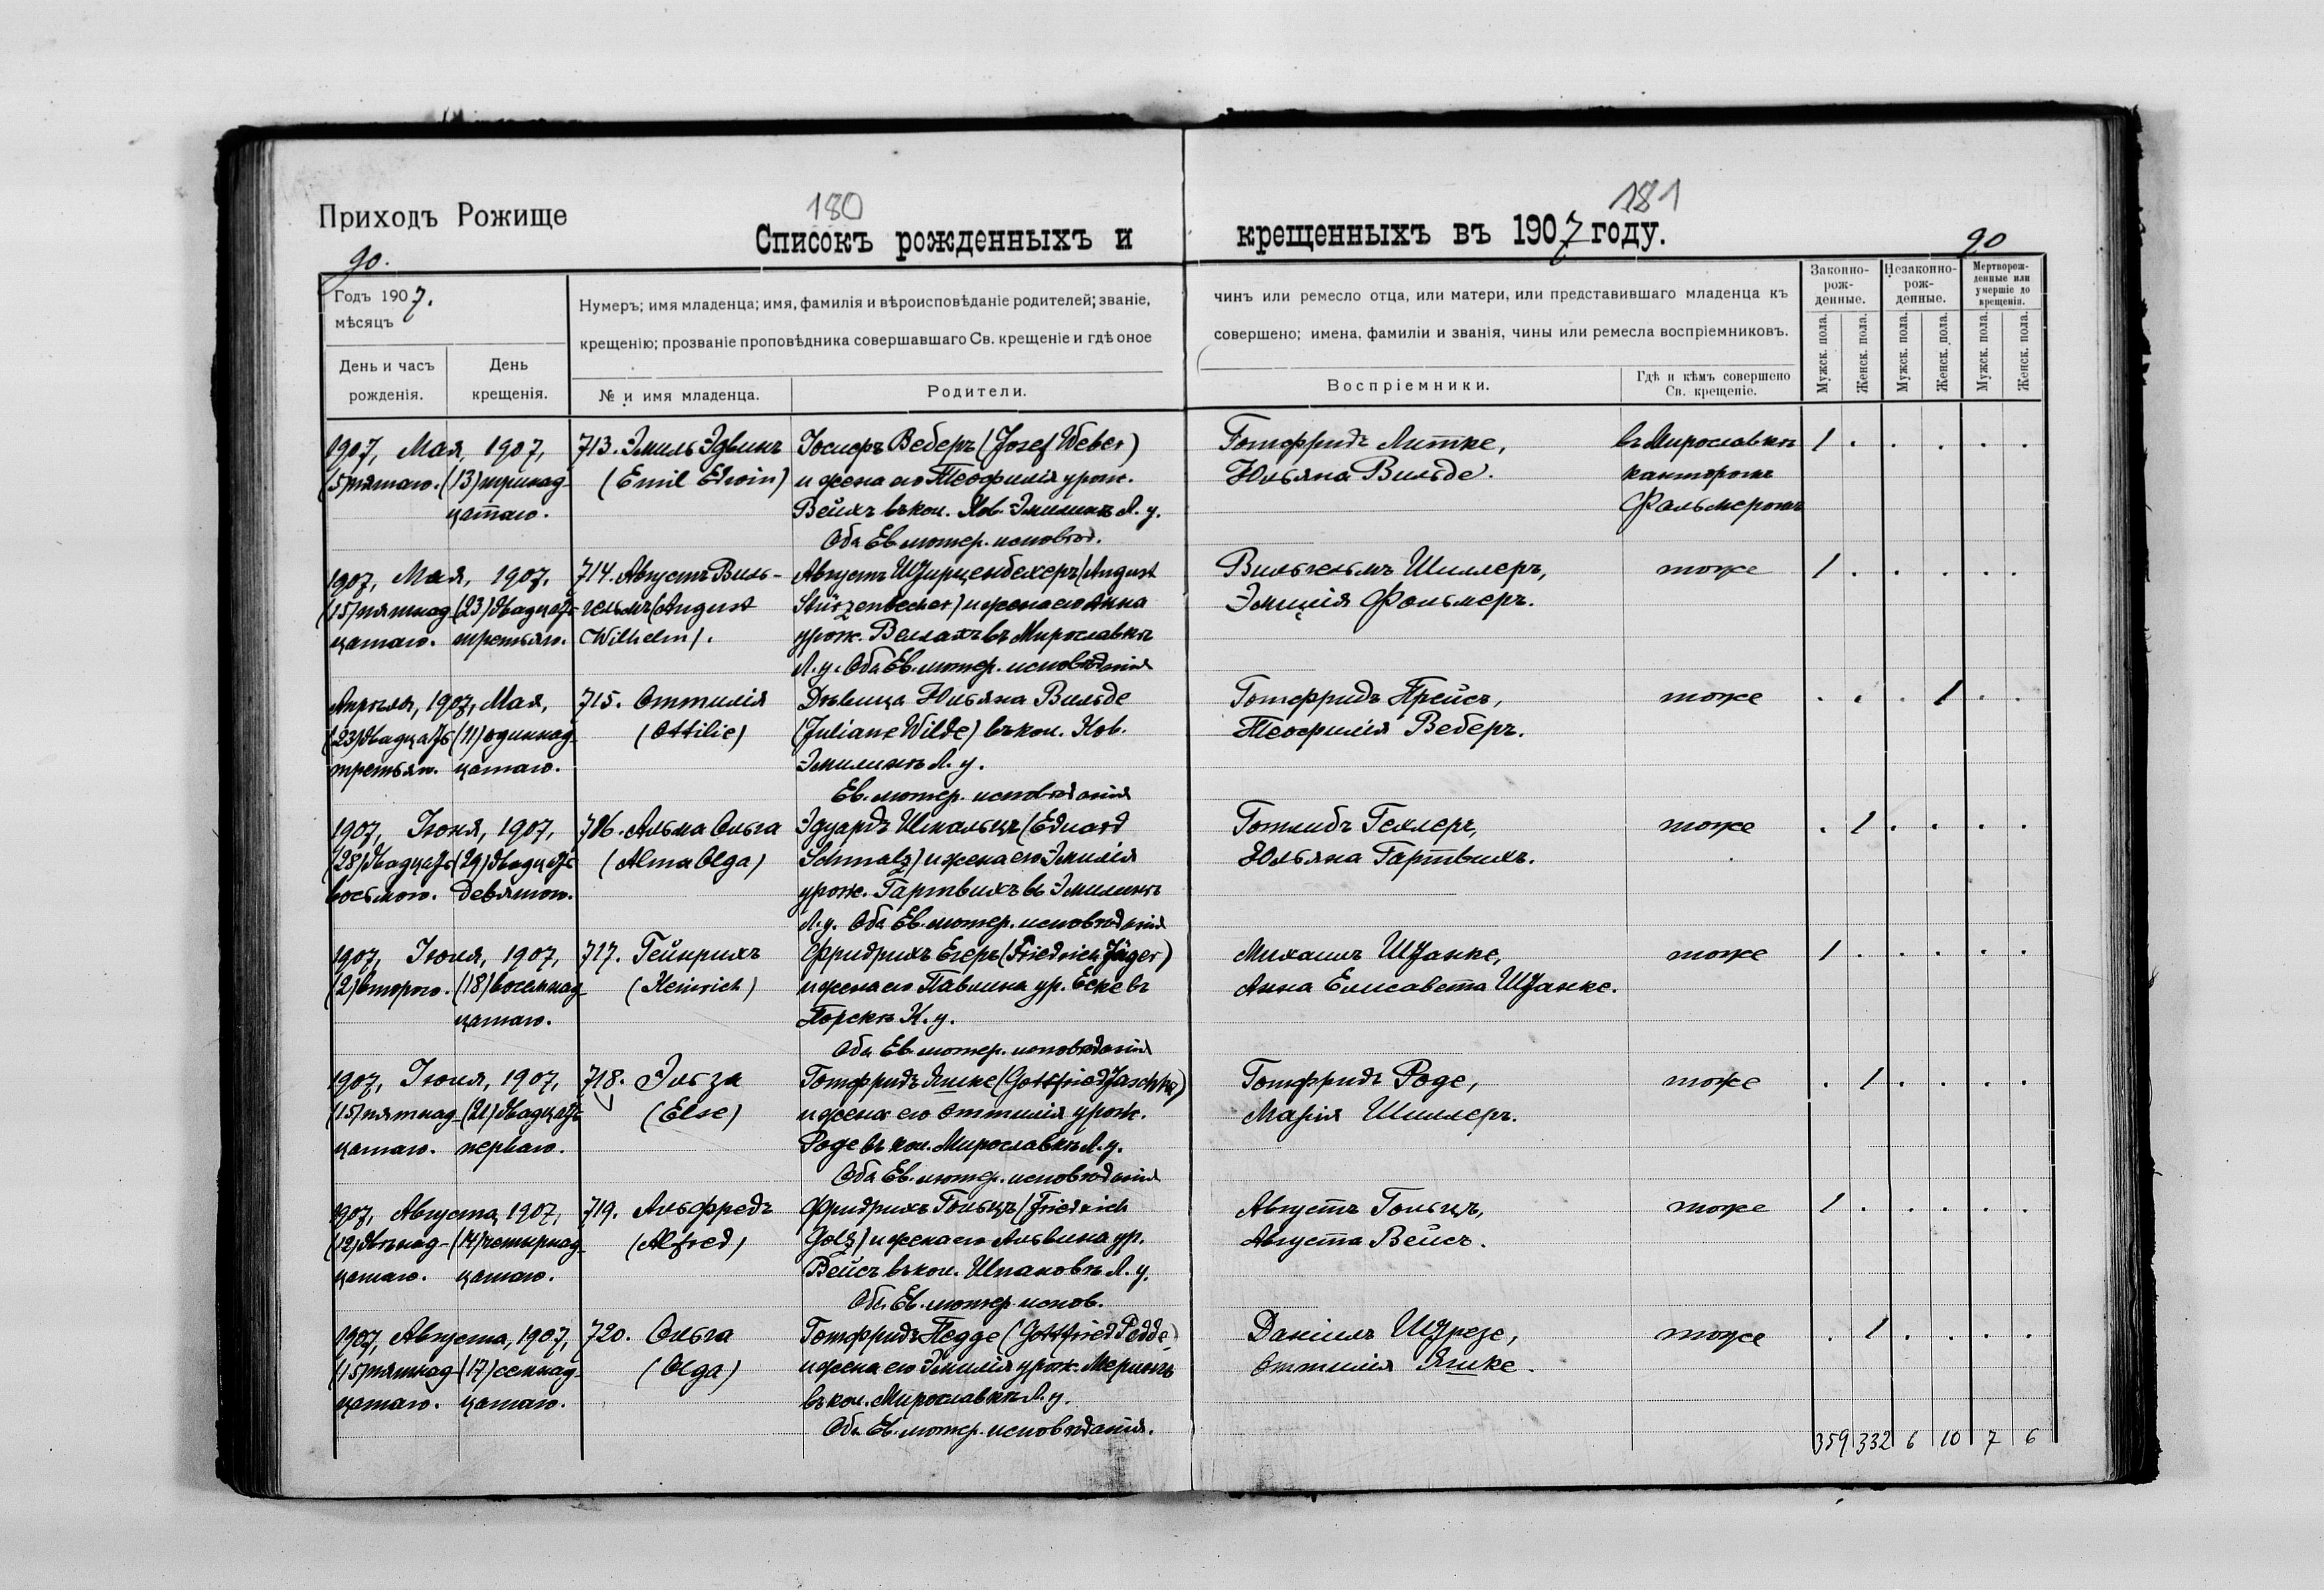 180
181
Приходъ Рожище
Списокъ рожденныхъ и крещенныхъ въ 1907 году.
90.
90
Годъ 1907.
мѣсяцъ
День и часъ рожденія.
День крещенія.
Нумеръ; имя младенца; имя, фамилія и вѣроисповѣданіе родителей; званіе,
крещенію; прозваніе проповѣдника совершавшаго Св. крещеніе и гдѣ оное
№ и имя младенца.
Родители.
чинъ или ремесло отца, или матери, или представившаго младенца къ
совершено; имена, фамиліи и званія, чины или ремесла воспріемниковъ.
Воспріемники.
Гдѣ и кѣмъ совершено
Св. крещеніе.
Законно-
рож-
денные.
Незаконно-
рож-
денные.
Мертворож-
денные или
умершіе до
крещенія.
Мужск. пола.
Женск. пола.
Мужск. пола.
Женск. пола.
Мужск. пола.
Женск. пола.
1907, Мая, 1907, 713. Эмиль Эдвинъ Іосифъ Веберъ (Josef Weber) Готфридъ Литке, въ Мирославкѣ 1 . . . . .
(5) пятаго. (13) тринад- (Emil Edwin) и жена его Теофилія урож. Юльяна Вильде. канторомъ
цатаго. Вейхъ въ кол. Нов. Эмилинѣ Л. у. Фольмеромъ
Оба Ев. лютер. исповѣд.
1907, Мая, 1907, 714. Августъ Виль- Августъ Штирценбехеръ (August Вильгельмъ Шиллеръ, тоже 1 . . . . .
(15) пятнад- (23) двадцать гельмъ (August Stürzenbecher) и жена его Анна Эмилія Фольмеръ.
цатаго. третьяго. Wilhelm). урож. въ Мирославкѣ
Л. у. Оба Ев. лютер. исповѣданія
Апрѣля, 1907, Мая, 715. Оттилія Дѣвица Юльяна Вильде Готфридъ Прейсъ, тоже . . . 1 . .
(23) двадцать (11) одиннад- (Ottilie) (Juliane Wilde) въ кол. Нов. Теофилія Веберъ.
третьяго. цатаго. Эмилинѣ Л. у.
Ев. лютер. исповѣданія
1907, Іюня, 1907, 716. Альма Ольга Эдуардъ Шмальцъ (Eduard Готлибъ Гехлеръ, тоже . 1 . . . .
(28) двадцать (29) двадцать (Alma Olga) Schmalz) и жена его Эмилія Юльяна Гартвихъ.
восьмого. девятого. урож. Гартвихъ въ Эмилинѣ
Л. у. Оба Ев. лютер. исповѣданія
1907, Іюня, 1907, 717. Гейнрихъ Фридрихъ Егеръ (Friedrich Jäger) Михаилъ Штанке, тоже 1 . . . . .
(2) второго. (18) восемнад- (Heinrich) и жена его Павлина ур. Еске въ Анна Елисавета Штанке.
цатаго. Торскѣ К. у.
Оба Ев. лютер. исповѣданія
1907, Іюня, 1907, 718. Эльза Готфридъ Яшке (Gottfried Jaschke) Готфридъ Роде, тоже . 1 . . . .
(15) пятнад- (21) двадцать (Else) и жена его Оттилія урож. Марія Шиллеръ.
цатаго. перваго. Роде въ кол. Мирославкѣ Л. у.
Оба Ев. лютер. исповѣданія
1907, Августа, 1907, 719. Альфредъ Фридрихъ Гольцъ (Friedrich Августъ Гольцъ, тоже 1 . . . . .
(12) двѣнад- (14) четырнад- (Alfred) Golz) и жена его Альвина ур. Августа Вейсъ.
цатаго. цатаго. Вейсъ въ кол. Шпаковѣ Л. у.
Оба Ев. лютер. испов.
1907, Августа, 1907, 720. Ольга Готфридъ Педде (Gottfried Pedde) Даніилъ Штрезе, тоже . 1 . . . .
(15) пятнад- (17) семнад- (Olga) и жена его Эмилія урож. Оттилія Яшке.
цатаго. цатаго. въ кол. Мирославкѣ Л. у.
Оба Ев. лютер. исповѣданія.
359 332 6 10 7 6